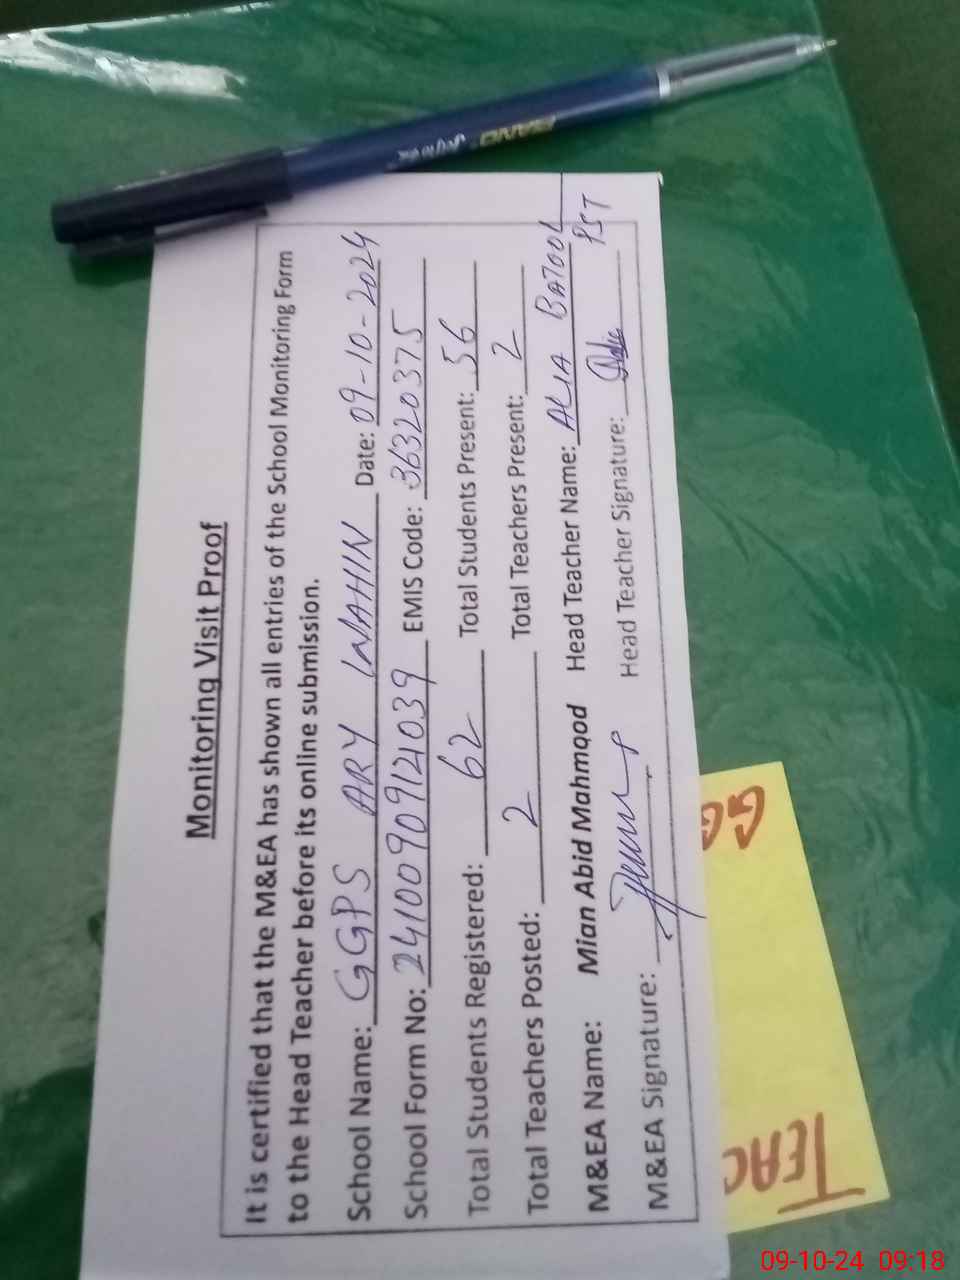 Monitoring Visit Proof
It is certified that the M&EA has shown all entries of the School Monitoring Form
to the Head Teacher before its online submission.
School Name: GGPS ARY WAHIN Date: 09-10-2024
School Form No: 24100909121039 EMIS Code: 36320375
Total Students Registered: 62 Total Students Present: 56
Total Teachers Posted: 2 Total Teachers Present: 2
M&EA Name: Mian Abid Mahmood Head Teacher Name: ALIA BATOOL PST
M&EA Signature: Head Teacher Signature:
PIANO
TEAC
GG
09-10-24 09:18